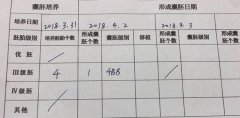 囊胚培养 形成囊胚日期
培养日期 2018.3.31 2018.4.2 2018.
胚胎级别 培养胚胎个数 形成囊胚个数 囊胚级别 移植 形成囊胚个数 囊胚级别
优 胚
Ⅲ级胚 4 1 4BB
Ⅳ级胚
其他